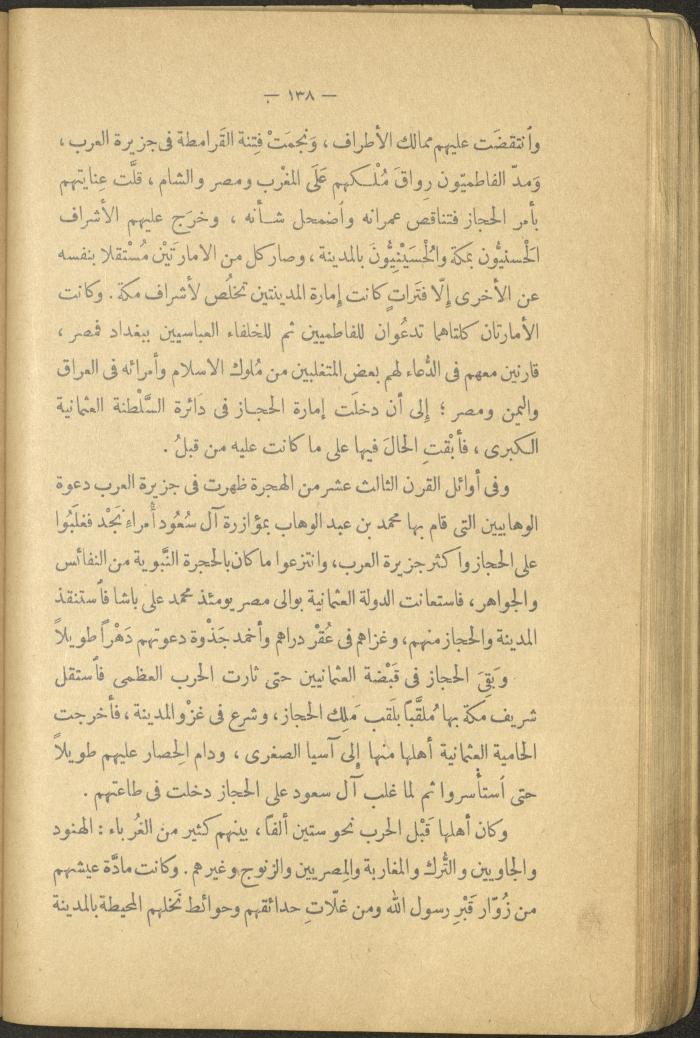 — ١٣٨ —
وٱنتقضَت عليهم ممالك الأطراف ، وَنجمَتْ فِتنة القَرامطة فى جزيرة العرب ،
وَمدّ الفاطميّون رِواقَ مُلْكهم عَلَى المغْرب ومصر والشام ، قلَّت عِنايتهم
بأمر الحجاز فتناقص عمرانه وٱضمحل شأنه ، وخرَج عليهم الأشراف
الحَسنيُّون بمكة والحُسَيْنِيُّونَ بالمدينة ، وصار كل من الامارَتيْن مُسْتقلا بنفسه
عن الأخرى إِلّا فتَراتٍ كانت إِمارة المدينتين تخلُص لأشراف مكة . وكانت
الأمارتان كلتاهما تدعُوان للفاطميين ثم للخلفاء العباسيين ببغداد فمصر ،
قارنين معهم فى الدُّعاء لهم بعض المتغلبين من مُلوك الاسلام وأمرائه فى العراق
واليمن ومصر ؛ إِلى أن دخلَت إمارة الحجاز فى دَائرة السَّلْطنة العثمانية
الكبرى ، فأبْقتِ الحالَ فيها على ما كانت عليه من قبلُ .
وفى أوائل القرن الثالث عشر من الهجرة ظهرت فى جزيرة العرب دعوة
الوهابيين التى قام بها محمد بن عبد الوهاب بمؤازرة آل سُعُود أُمراءِ نَجْد فغلَبُوا
على الحجاز وا كثر جزيرة العرب، وانتزعوا ما كان بالحجرة النَّبوية من النفائس
والجواهر ، فاستعانت الدولة العثمانية بوالى مصر يومئذ محمد على باشا فٱستنقذ
المدينة والحجاز منهم، وغزاهم فى عُقْر دراهم وأخمد جَذْوة دعوتهم دَهْراً طويلاً
وبَقِىَ الحجاز فى قَبْضة العثمانيين حتى ثارت الحرب العظمى فٱستقل
شريف مكة بها مُلقَّباً بلَقب مَلِك الحجاز، وشرع فى غزْو المدينة ، فأخرجت
الحامية العثمانية أهلها منها إِلى آسيا الصغرى ، ودام الحِصار عليهم طويلاً
حتى ٱستأْسروا ثم لما غلب آل سعود على الحجاز دخلت فى طاعتهم .
وكان أهلها قَبْل الحرب نحو ستين ألفاً، بينهم كثير من الغُر باء : الهنود
والجاويين والتُّرك والمغاربة والمِصريين والزنوج وغيرهم . وكانت مادَّة عيشهم
من زُوّار قَبْرِ رسول الله ومن غلّاتِ حدائقهم وحوائط نَخلهم المحيطة بالمدينة